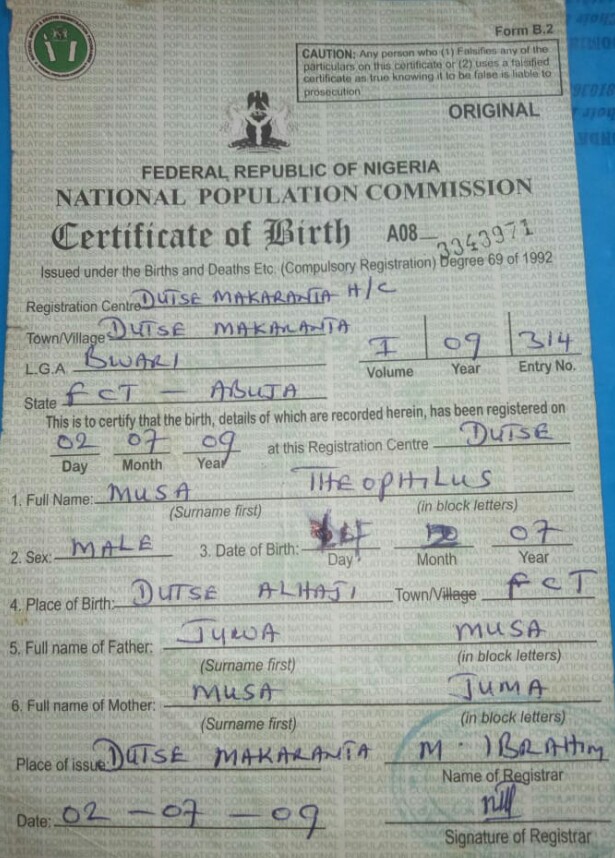 Form B.2
CAUTION: Any person who (1) Falsifies any of the
particulars on this certificate or (2) uses a falsified
certificate as true knowing it to be false is liable to
prosecution
ORIGINAL
FEDERAL REPUBLIC OF NIGERIA
NATIONAL POPULATION COMMISSION
Certificate of Birth A08 3343971
Issued under the Births and Deaths Etc. (Compulsory Registration) Degree 69 of 1992
Registration Centre DUTSE MAKARANTA H/C
Town/Village DUTSE MAKARANTA
L.G.A BWARI
I 09 314
Volume Year Entry No.
State FCT - ABUJA
This is to certify that the birth, details of which are recorded herein, has been registered on
02 07 09 at this Registration Centre DUTSE
Day Month Year
1. Full Name: MUSA THEOPHILUS
(Surname first) (in block letters)
2. Sex: MALE 3. Date of Birth: 07
Day Month Year
4. Place of Birth: DUTSE ALHAJI Town/Village FCT
5. Full name of Father: MUSA
(Surname first) (in block letters)
6. Full name of Mother: MUSA JUMA
(Surname first) (in block letters)
Place of issue DUTSE MAKARANTA M. IBRAHIM
Name of Registrar
Date: 02 - 07 - 09
Signature of Registrar